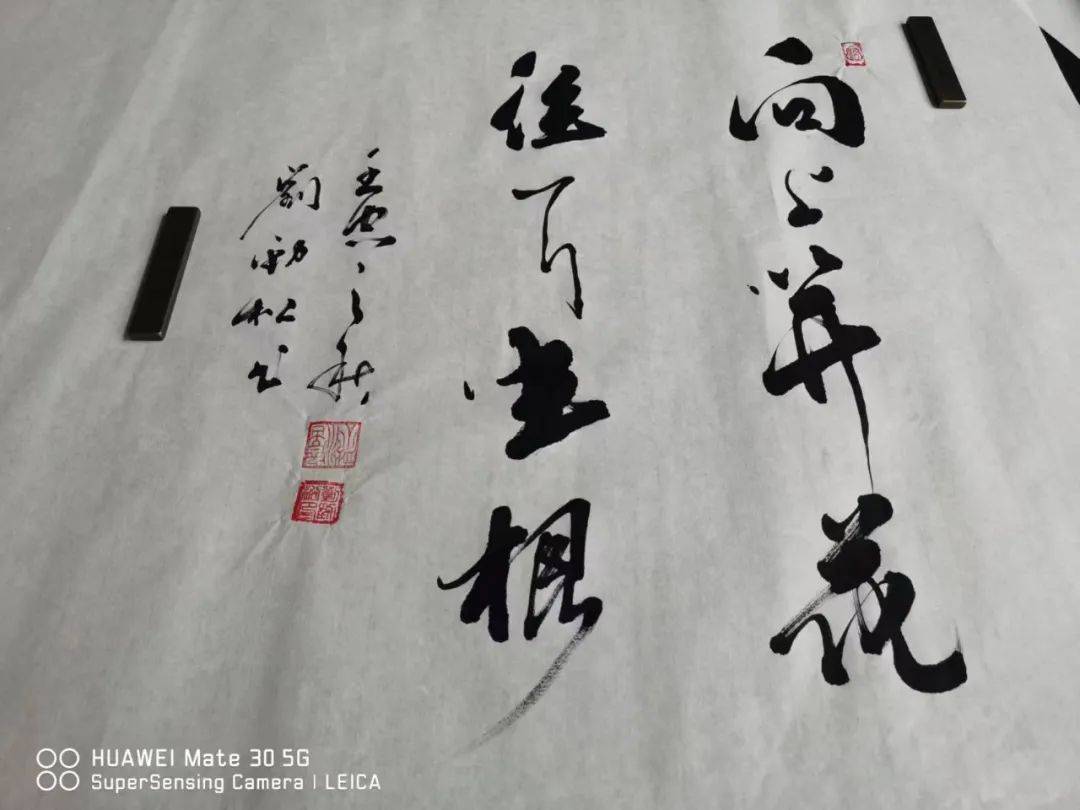 向上開花
往下生根
壬寅之秋
劉勁松书
HUAWEI Mate 30 5G
SuperSensing Camera | LEICA